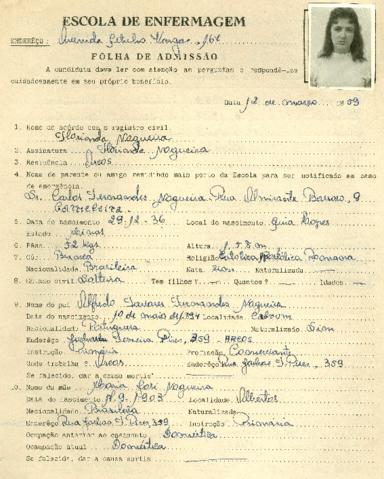 ESCOLA DE ENFERMAGEM
ENDERÊÇO: Avenida Getulio Vargas,
FOLHA DE ADMISSÃO
A candidata deve ler com atenção as perguntas e respondê-las
cuidadosamente em seu próprio benefício.
Data 12 de março 59
1. Nome de acordo com o registro civil
Florianda Nogueira
2. Assinatura Florianda Nogueira
3. Residência Arcos
4. Nome de parente ou amigo residindo mais perto da Escola para ser notificado em caso
de emergência.
Sr. Carlos Fernandes Nogueira. Rua Almirante Barroso, 9
5. Data do nascimento 29.12.36 Local do nascimento
Estado Minas
6. Pêso. 52 kgs Altura.
7. Côr Branca Religião Católica Apostólica Romana
Nacionalidade Brasileira Nata Naturalizada
8. Estado civil Solteira Tem filhos? Quantos? Idades
9. Nome do pai Alfredo Tavares Fernandes Nogueira
Data do nascimento 1º de maio de Localidade
Nacionalidade Portuguesa Naturalizado
Enderêço 359 - ARCOS
Instrução Primária Profissão Comerciante
Onde trabalha Arcos Enderêço Rua 359
Se falecido, dar a causa mortis
10. Nome da mãe Maria José Nogueira
Data do nascimento 1903 Localidade
Nacionalidade Brasileira Naturalizada
Enderêço Rua 359 Instrução Primária
Ocupação anterior ao casamento Doméstica
Ocupação atual Doméstica
Se falecida, dar a causa mortis